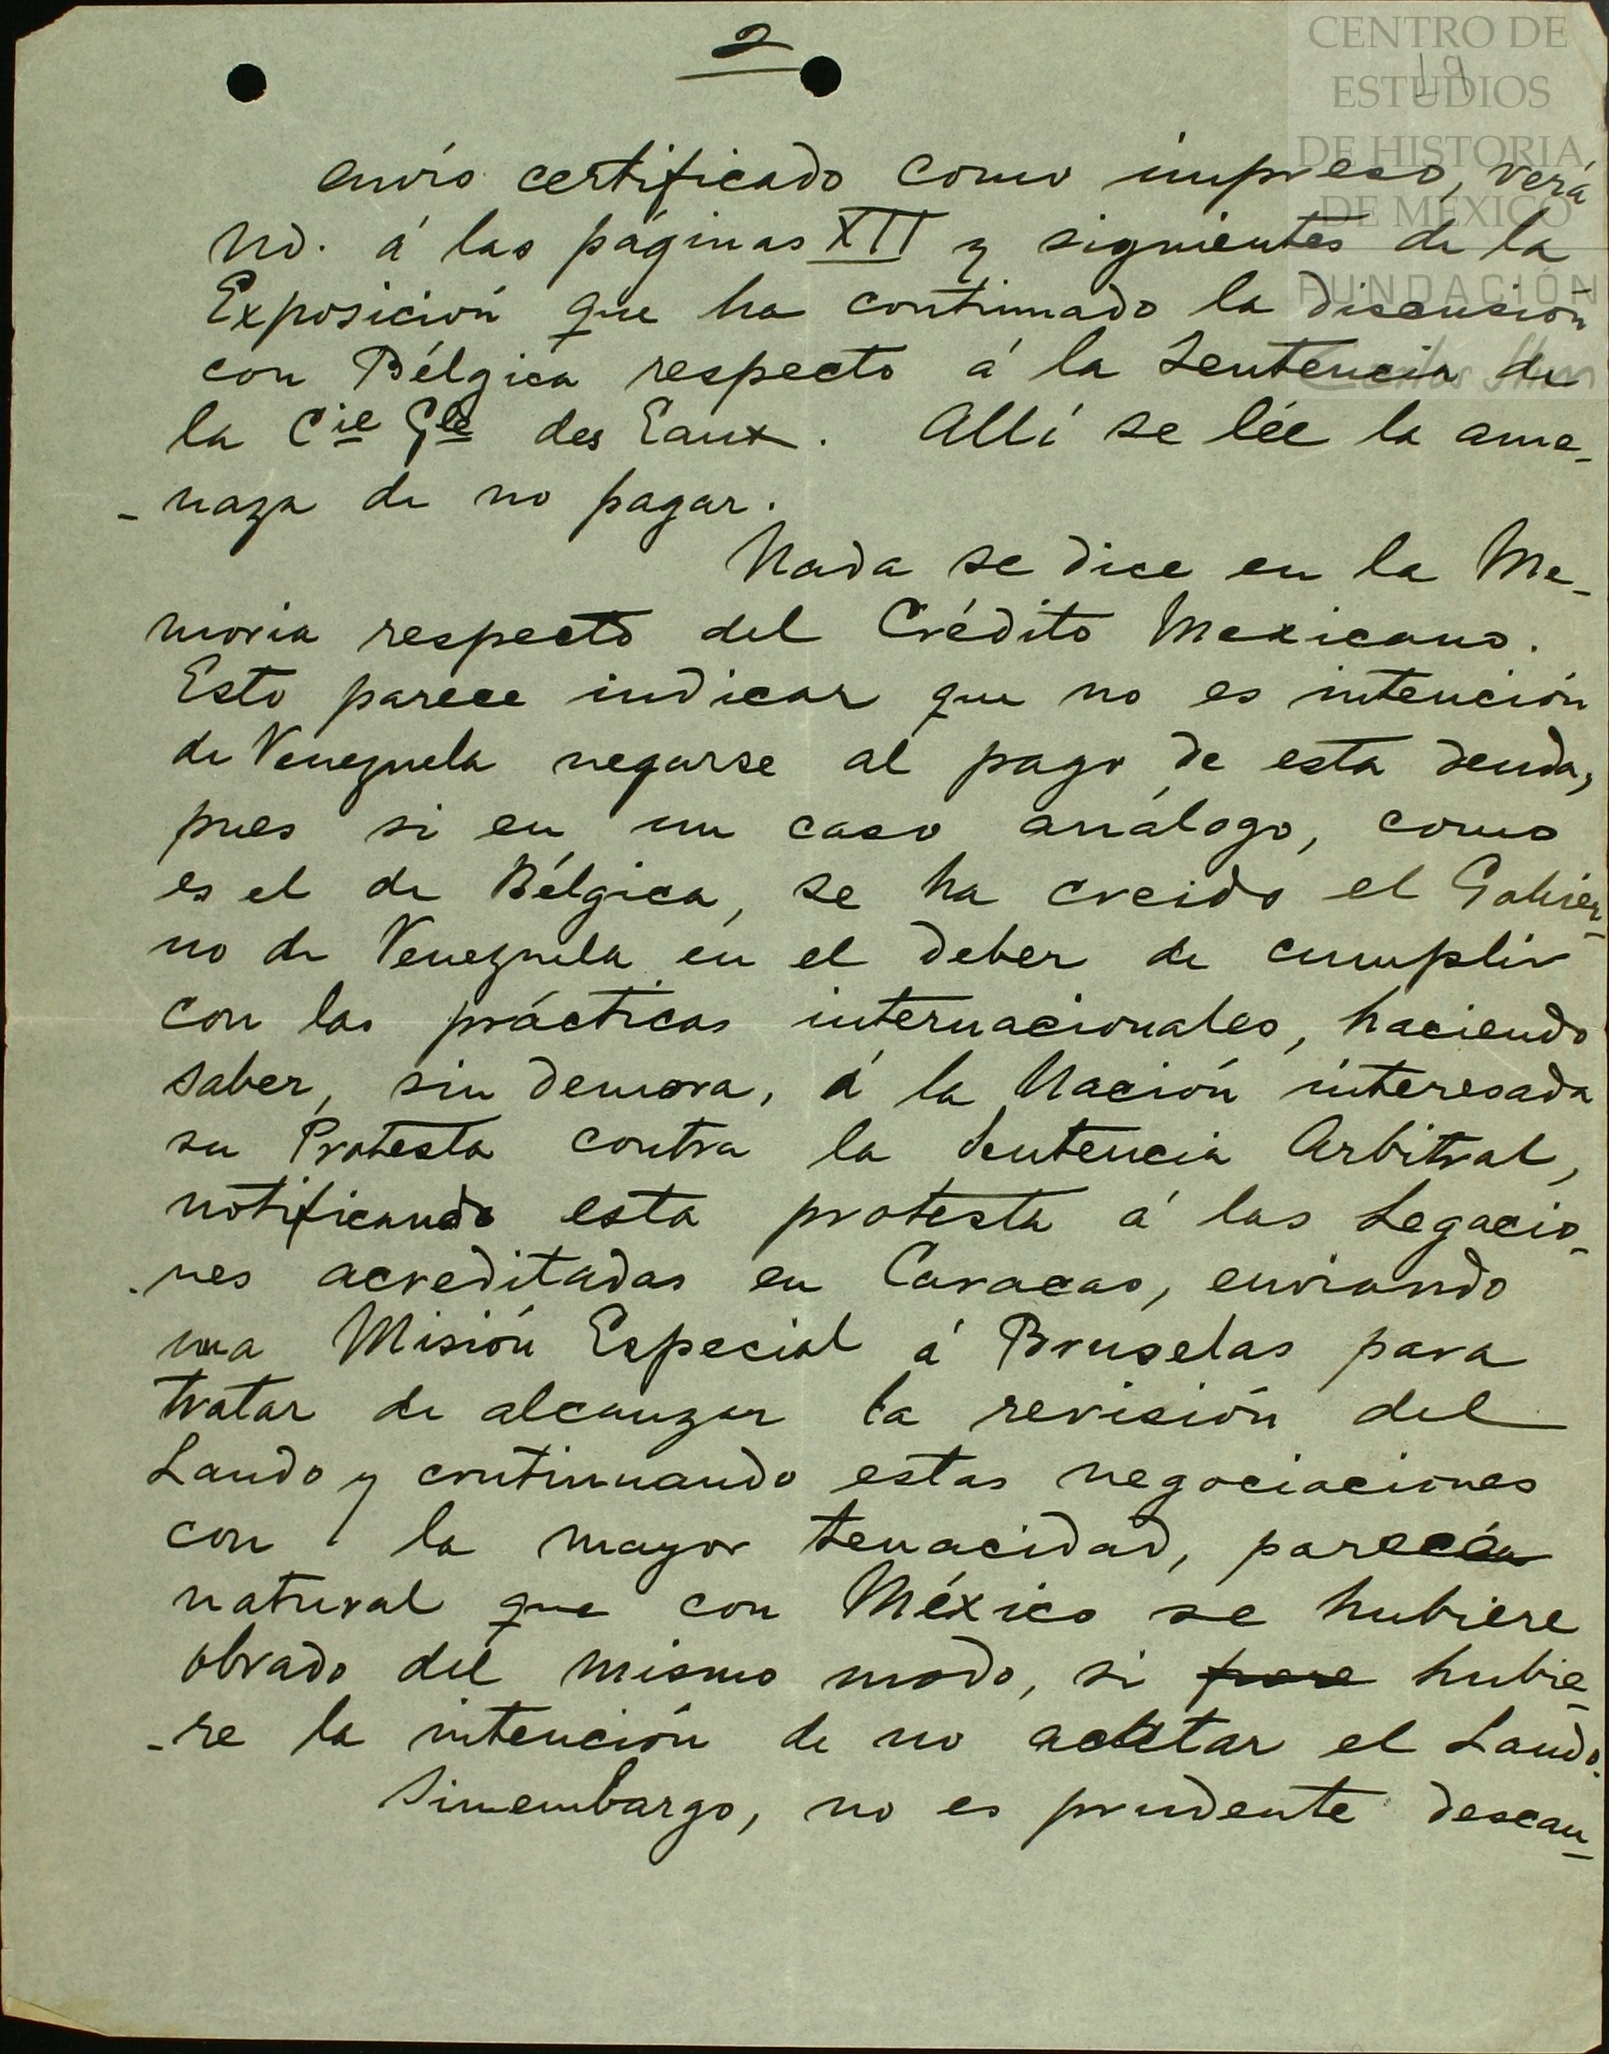 2
19
CENTRO DE
ESTUDIOS
DE HISTORIA
DE MÉXICO
FUNDACIÓN
envío certificado como impreso, verá
Ud. á las páginas XII y siguientes de la
Exposición que ha continuado la discusión
con Bélgica respecto á la Sentencia de
la Cie Gle des Eaux. Allí se lée la ame-
-naza de no pagar.
Nada se dice en la Me-
moria respecto del Crédito Mexicano.
Esto parece indicar que no es intención
de Venezuela negarse al pago de esta deuda,
pues si en un caso análogo, como
es el de Bélgica, se ha creido el Gobier-
no de Venezuela en el deber de cumplir
con las prácticas internacionales, haciendo
saber, sin demora, á la Nación interesada
su Protesta contra la Sentencia Arbitral,
notificando esta protesta á las Legacio-
-nes acreditadas en Caracas, enviando
una Misión Especial á Bruselas para
tratar de alcanzar la revisión del
Laudo y continuando estas negociaciones
con la mayor tenacidad, parecía
natural que con México se hubiere
obrado del mismo modo, si hubie-
-re la intención de no acatar el Laudo.
Sinembargo, no es prudente descan-